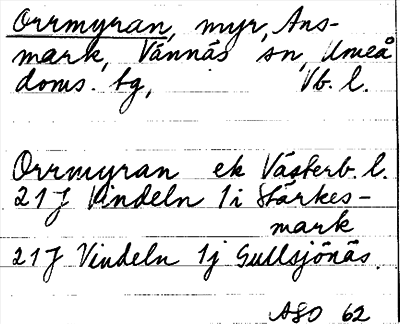 Orrmyran, myr, Ans-
mark, Vännäs sn, Umeå
doms. tg, Vb. l.
Orrmyran ek Västerb. l.
21J Vindeln 1i Stärkes-
mark
21J Vindeln 1j Gullsjönäs.
ASO 62